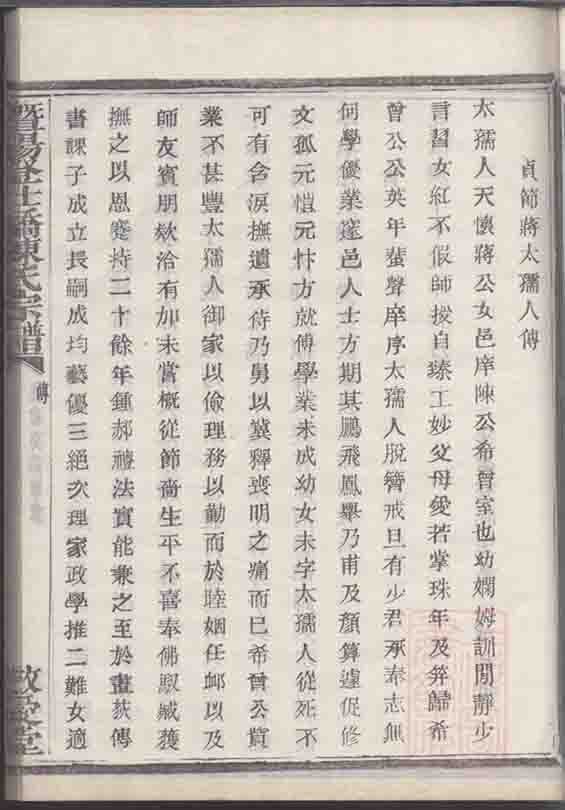 貞節蔣太孺人傳
太孺人天懷蔣公女邑庠陳公希曾室也幼嫻姆訓閒靜少
言習女紅不假師授自臻工妙父母愛若掌珠年及笄歸希
曾公公英年蜚聲庠序太孺人脫簪戒旦有少君承奉志無
何學優業邃邑人士方期其鵬飛鳳舉乃甫及顏算遽促修
文孤元愷元忭方就傅學業未成幼女未字太孺人從死不
可有含淚撫遺承侍乃舅以冀釋喪明之痛而已希曾公貲
業不甚豐太孺人御家以儉理務以勤而於睦婣任卹以及
師友賓朋欸洽有加未嘗槪從節嗇生平不喜奉佛馭臧獲
撫之以恩蹇持二十餘年鍾郝禮法實能兼之至於畫荻傳
書課子成立長嗣成均藝優三絕次理家政學推二難女適
暨陽 陳氏宗譜
傳
敬愛堂